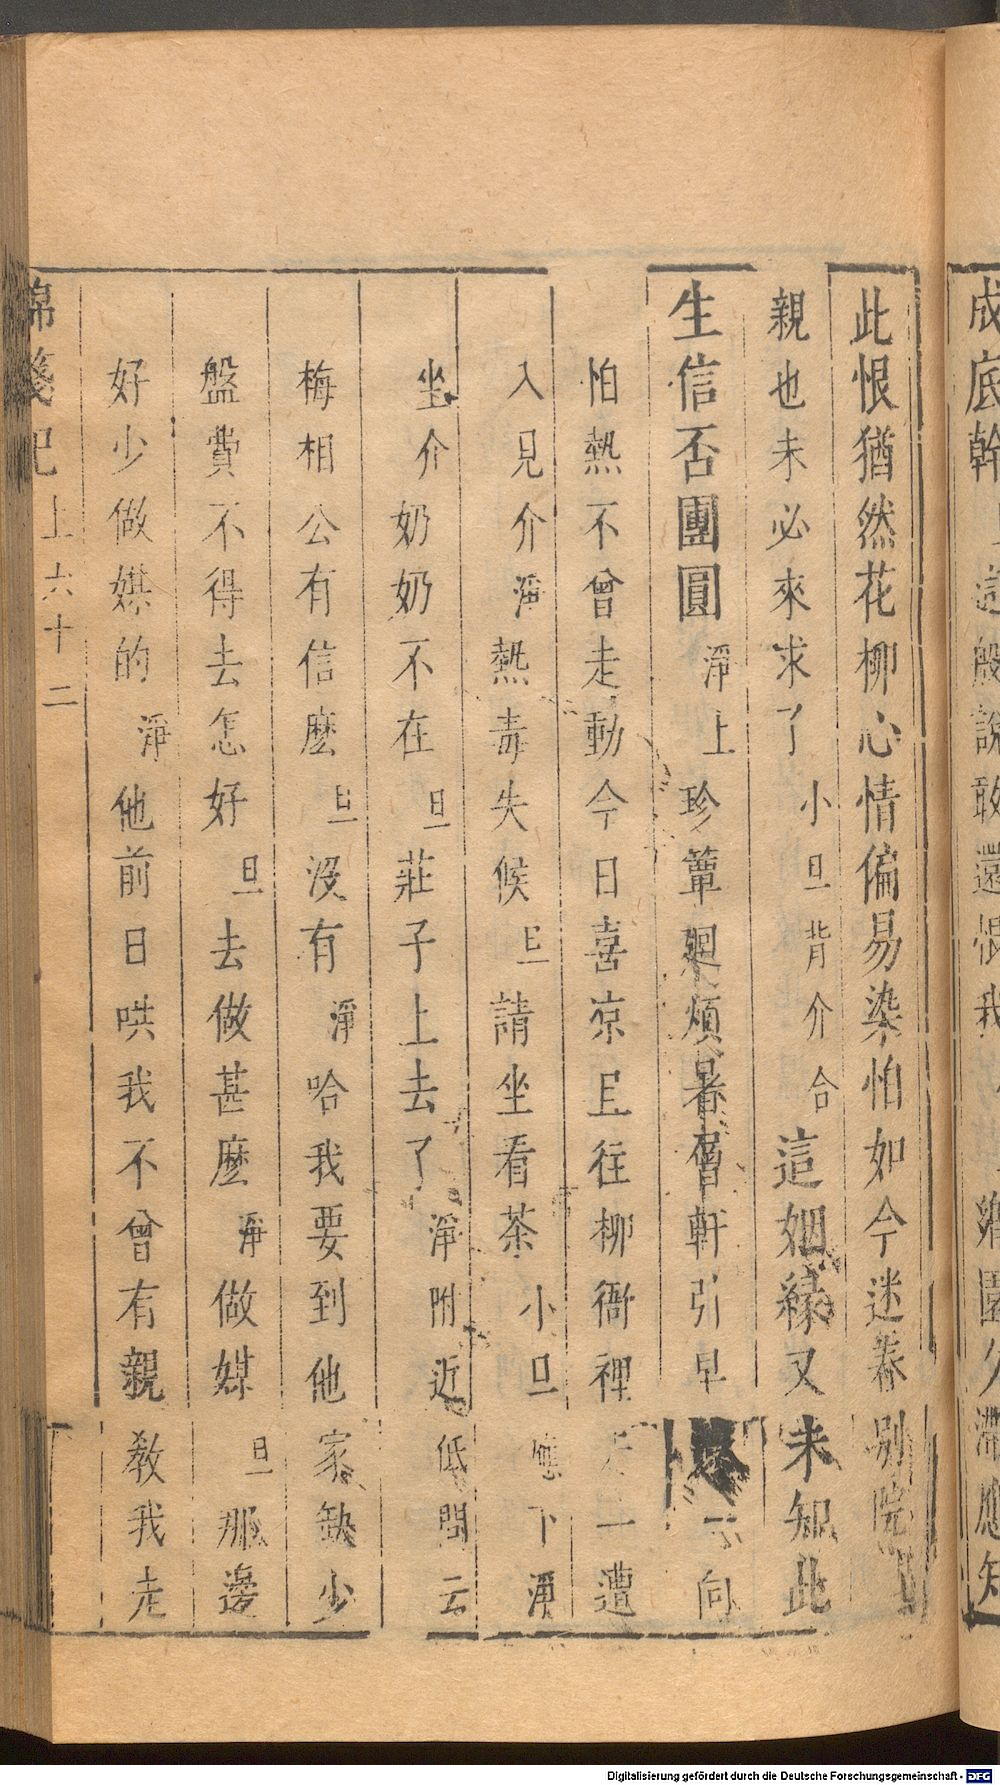 成底幹這般說敢還恨我鄉園久滯應知
此恨猶然花柳心情偏易染怕如今迷卷別院
親也未必來求了小旦背介合這姻緣又未知此
生信否團圓淨上珍簟廻煩暑軒引早一向
怕熱不曾走動今日喜凉且往柳衙裡走一遭
入見介淨熱毒失候旦請坐看茶小旦應下淨
坐介奶奶不在旦莊子上去了淨附近低問云
梅相公有信麽旦沒有淨哈我要到他家缺少
盤費不得去怎好旦去做甚麽淨做媒旦那邊
好少做媒的淨他前日哄我不曾有親教我走
錦箋記上六十二
Digitalisierung gefördert durch die Deutsche Forschungsgemeinschaft - DFG